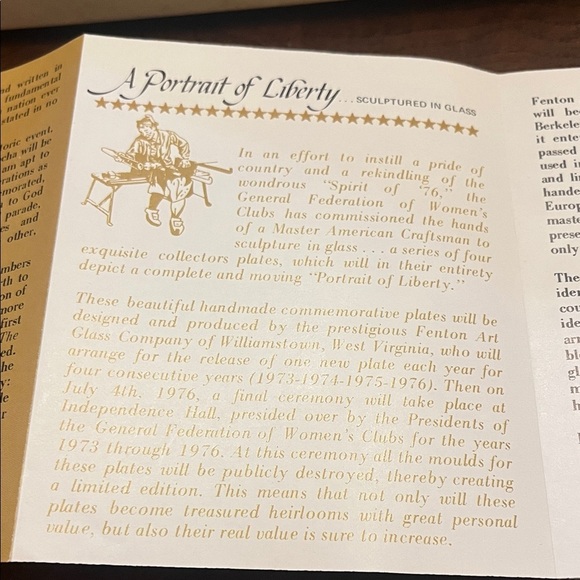 nd written in
fundamental
nation ever
stated in no
oric event,
cha will be
am apt to
rations as
morated,
to God
parade,
es and
other,
mbers
th to
on of
more
first
The
ed.
he
y:
le
r
A Portrait of Liberty ... SCULPTURED IN GLASS
In an effort to instill a pride of
country and a rekindling of the
wondrous "Spirit of '76," the
General Federation of Women's
Clubs has commissioned the hands
of a Master American Craftsman to
sculpture in glass . . . a series of four
exquisite collectors plates, which will in their entirety
depict a complete and moving "Portrait of Liberty."
These beautiful handmade commemorative plates will be
designed and produced by the prestigious Fenton Art
Glass Company of Williamstown, West Virginia, who will
arrange for the release of one new plate each year for
four consecutive years (1973-1974-1975-1976). Then on
July 4th, 1976, a final ceremony will take place at
Independence Hall, presided over by the Presidents of
the General Federation of Women's Clubs for the years
1973 through 1976. At this ceremony all the moulds for
these plates will be publicly destroyed, thereby creating
a limited edition. This means that not only will these
plates become treasured heirlooms with great personal
value, but also their real value is sure to increase.
Fenton
will be
Berkele
it ente
passed
used i
and li
hande
Europ
maste
prese
only
The
iden
cou
ide
arr
bl
gl
m
h